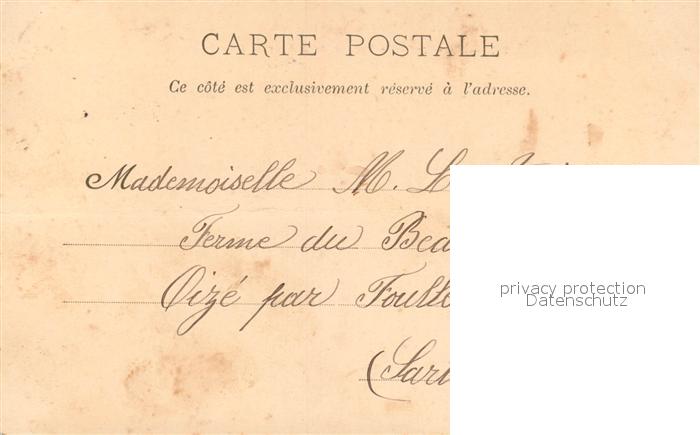 CARTE POSTALE
Ce côté est exclusivement réservé à l'adresse.
Mademoiselle M. L
Ferme du Bea
Oizé par Foullt
(Sart
privacy protection
Datenschutz